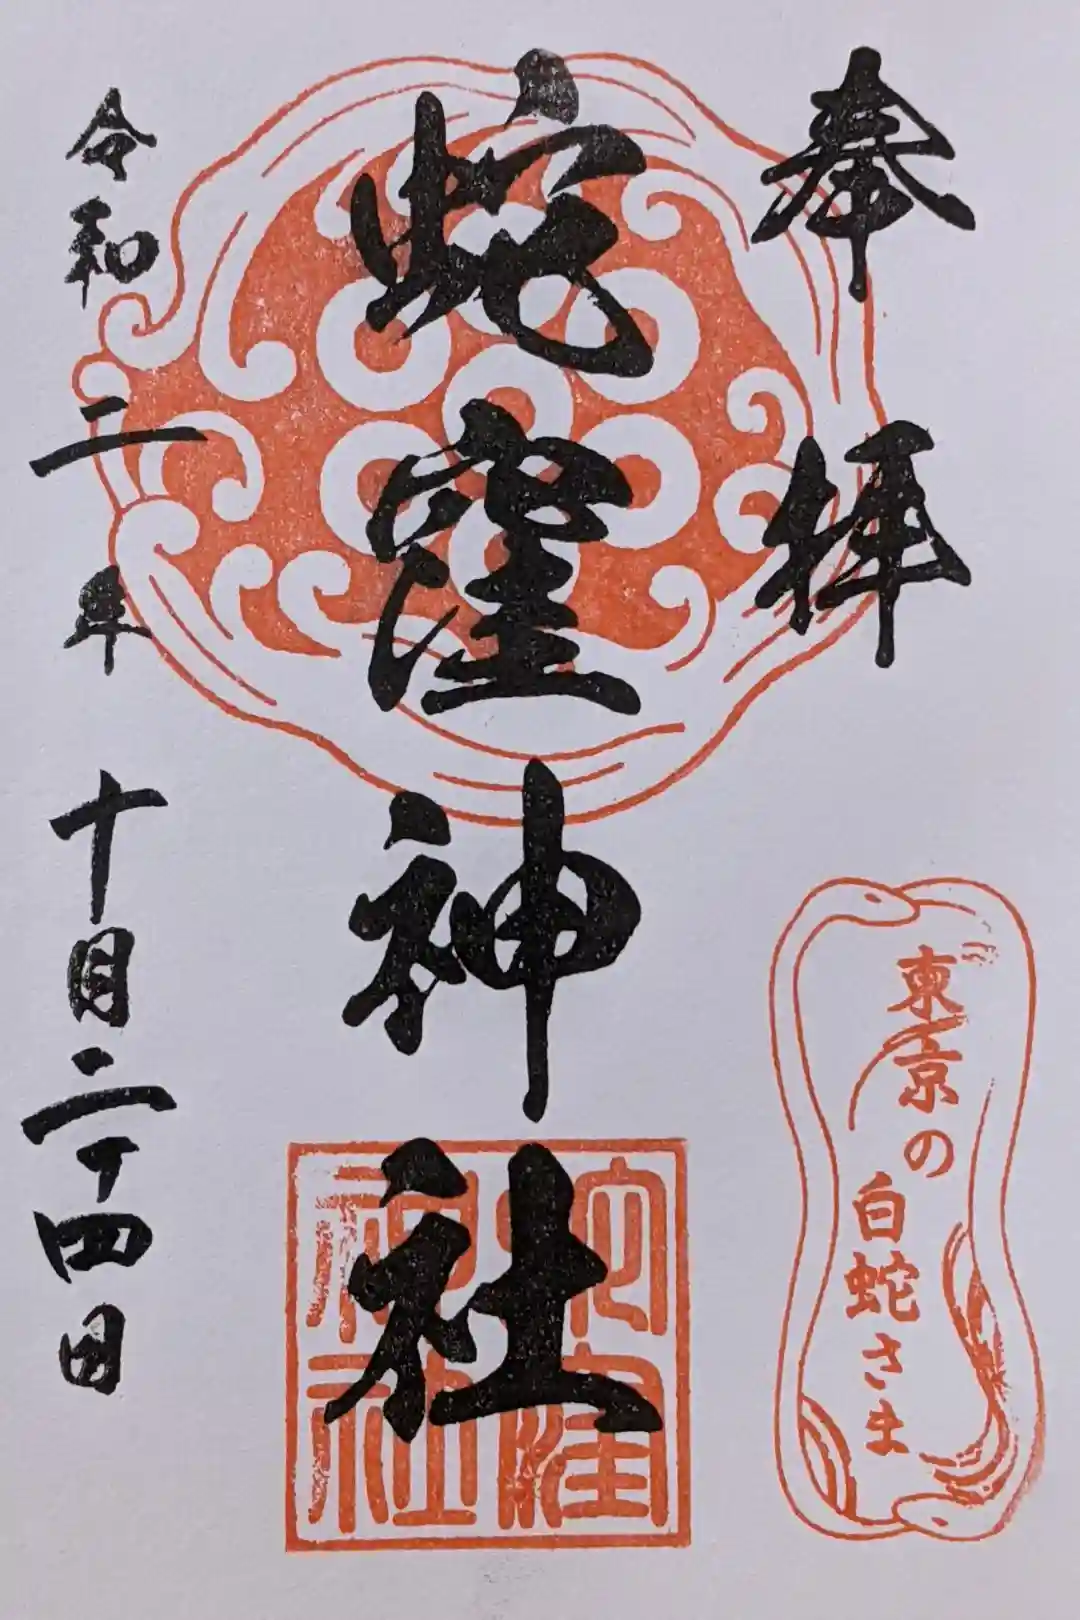 奉拝
東京の
白蛇さま
蛇窪神社
蛇窪
神社
令和二年十月二十四日